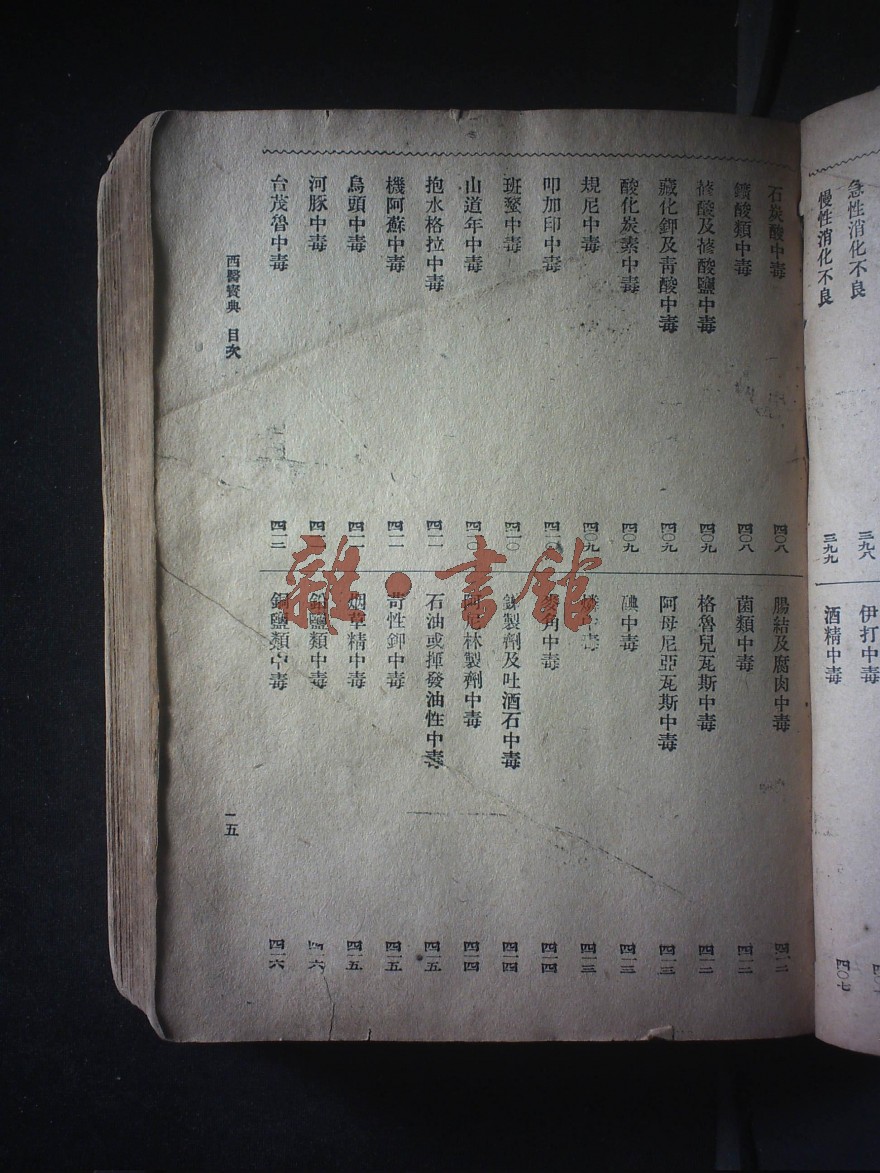 急性消化不良 三九八
慢性消化不良 三九九
伊打中毒
酒精中毒 四〇七
石炭酸中毒 四〇八
鑛酸類中毒 四〇八
蓚酸及蓚酸鹽中毒 四〇九
藏化鉀及青酸中毒 四〇九
酸化炭素中毒 四〇九
規尼中毒 四〇九
叩加印中毒 四一〇
班蝥中毒 四一〇
山道年中毒 四一〇
抱水格拉中毒 四一一
機阿蘇中毒 四一一
烏頭中毒 四一一
河豚中毒
台茂魯中毒 四一二
腸結及腐肉中毒 四一二
菌類中毒 四一二
格魯兒瓦斯中毒 四一二
阿母尼亞瓦斯中毒 四一三
碘中毒 四一三
燐中毒 四一三
麥角中毒 四一四
銻製劑及吐酒石中毒 四一四
阿尼林製劑中毒 四一四
石油或揮發油性中毒 四一五
苛性鉀中毒 四一五
烟草精中毒 四一五
鉛鹽類中毒 四一六
銅鹽類中毒 四一六
西醫寳典 目次
一五
雜·書館